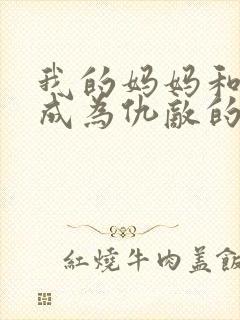 我的妈妈和
成为仇敌的
紅燒牛肉盖飯